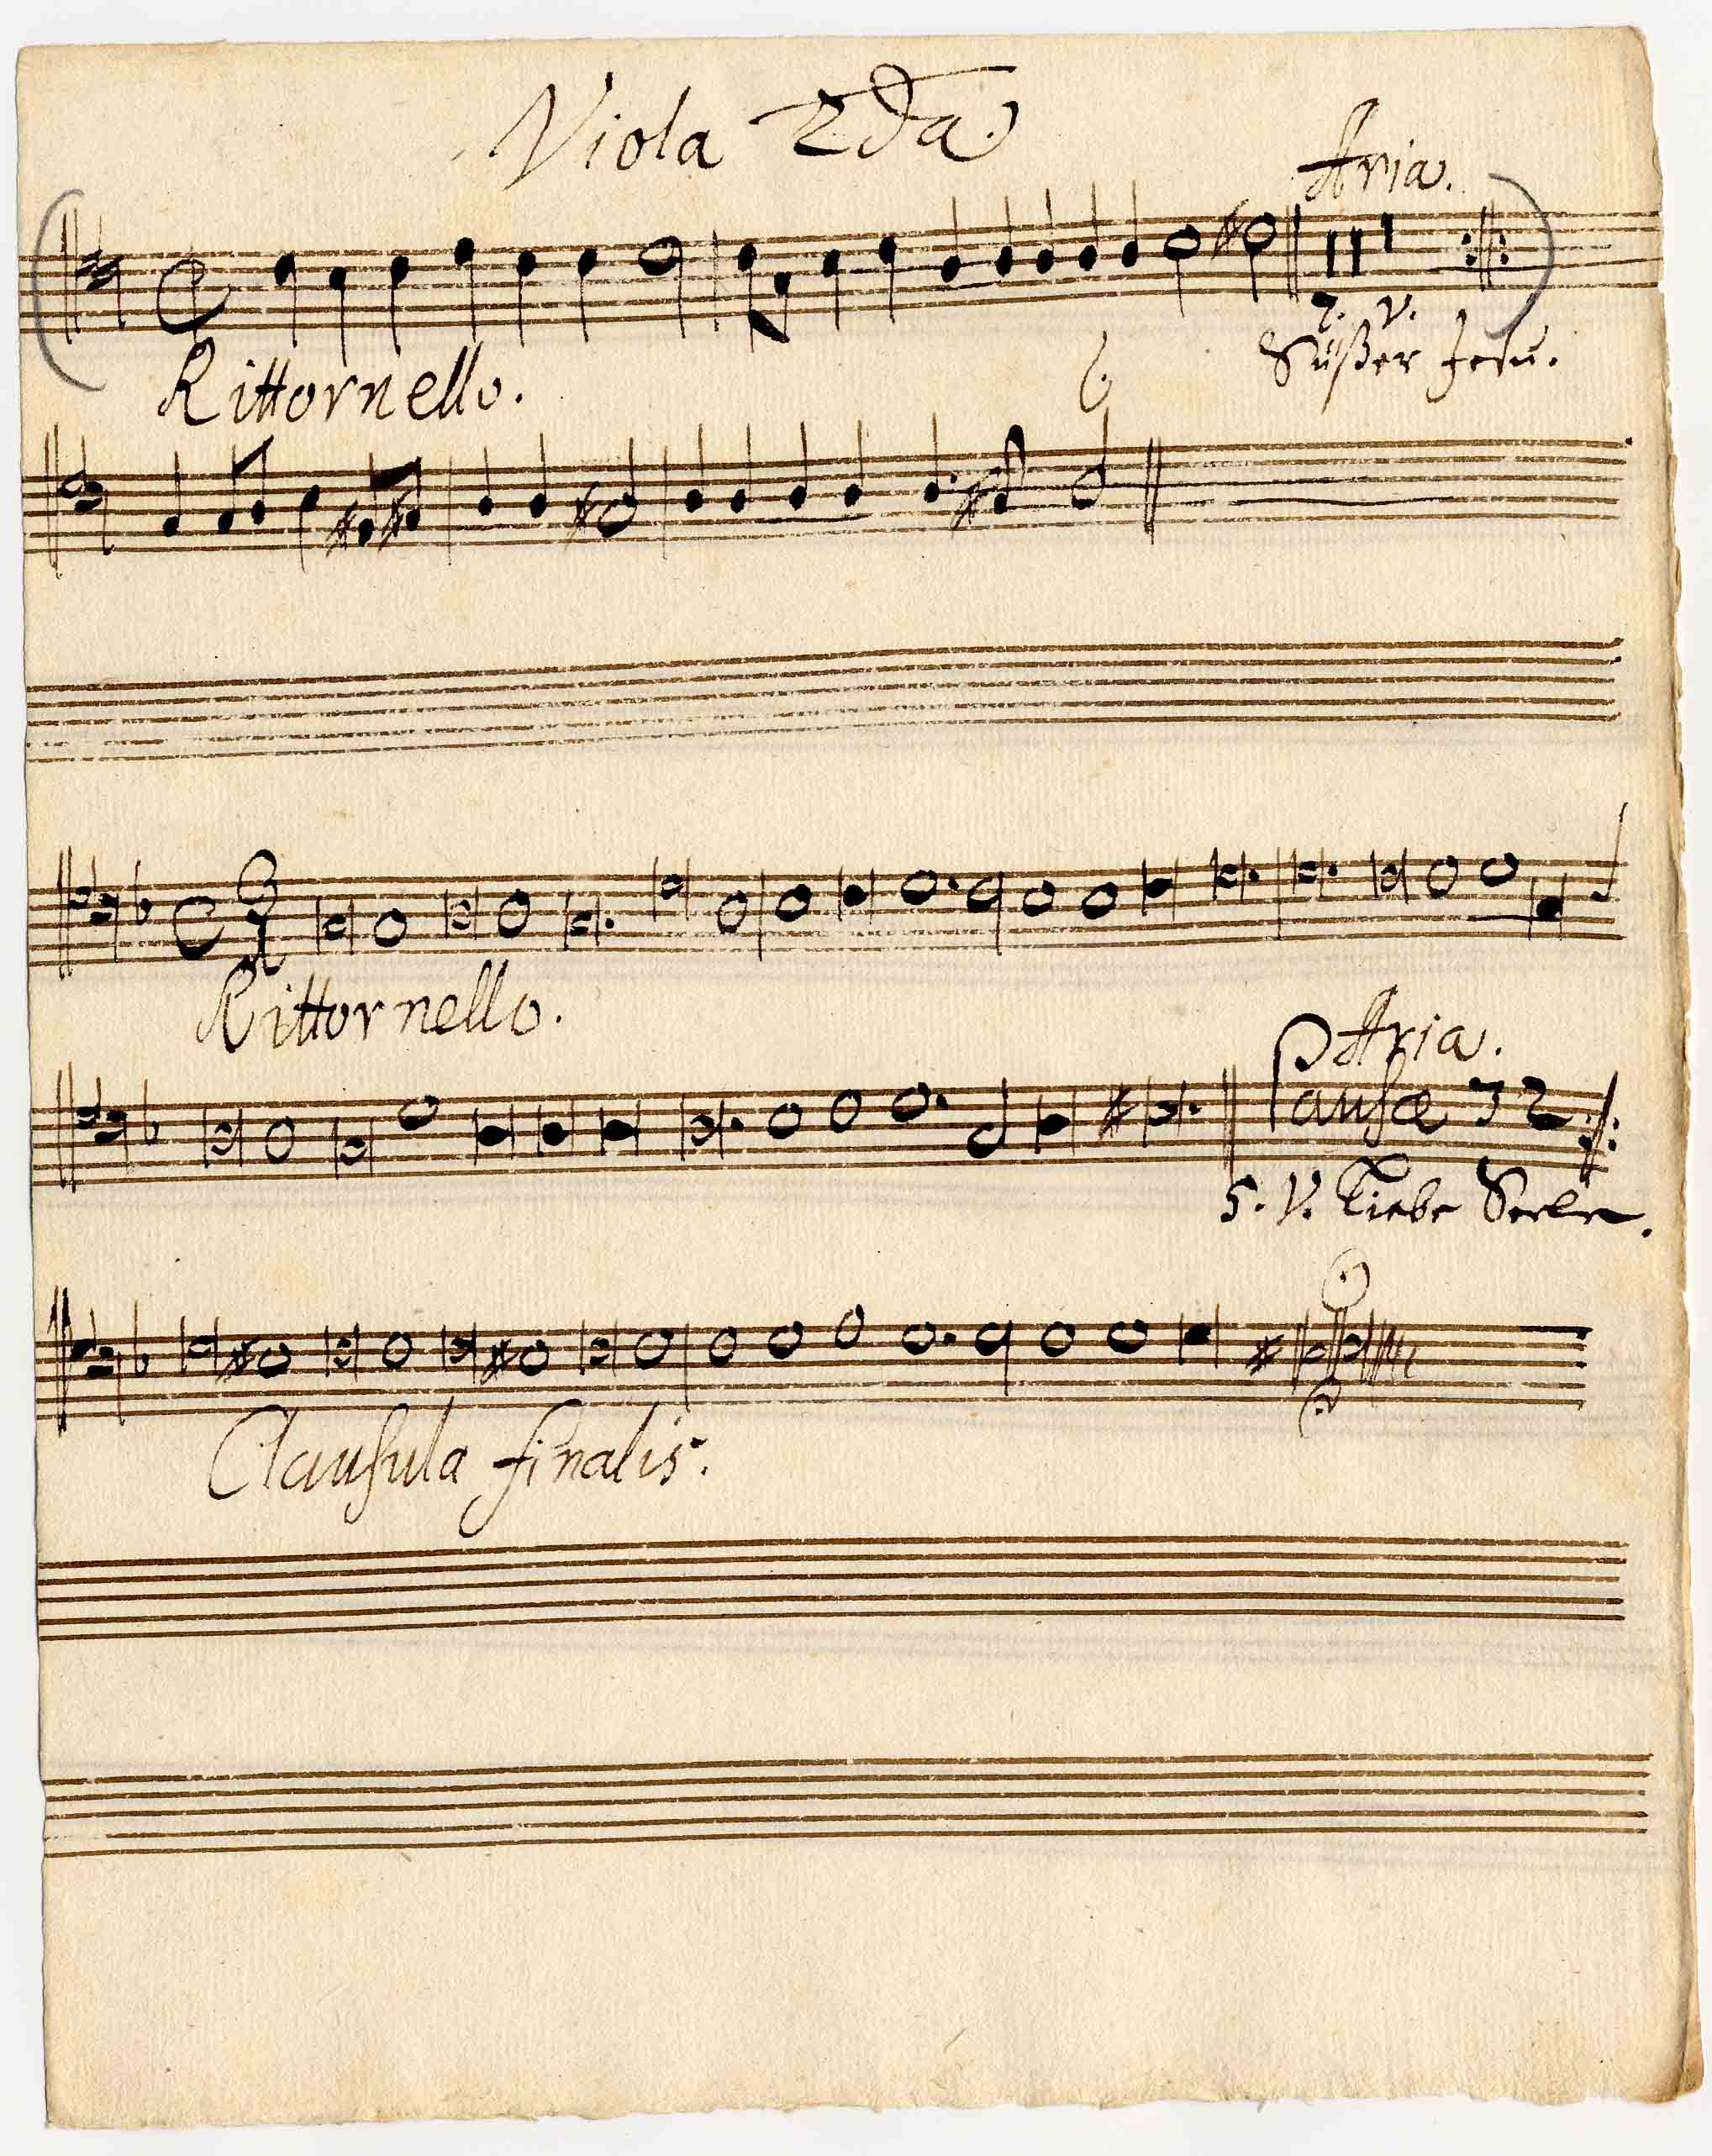 Viola 2da.
Aria.
7. V.
Süßer Jesu.
Rittornello.
C 3
Rittornello.
Aria.
Pausæ 32
5. V. Liebe Seele.
Clausula finalis.